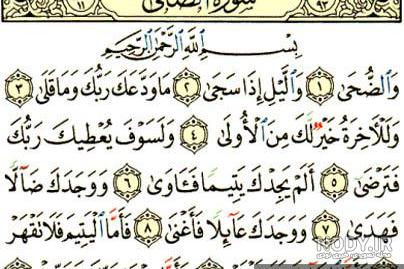 سورة الضحى
بِسْمِ ٱللَّهِ ٱلرَّحْمَٰنِ ٱلرَّحِيمِ
وَٱلضُّحَىٰ ۝١ وَٱلَّيْلِ إِذَا سَجَىٰ ۝٢ مَا وَدَّعَكَ رَبُّكَ وَمَا قَلَىٰ ۝٣
وَلَلْآخِرَةُ خَيْرٌ لَّكَ مِنَ ٱلْأُولَىٰ ۝٤ وَلَسَوْفَ يُعْطِيكَ رَبُّكَ
فَتَرْضَىٰ ۝٥ أَلَمْ يَجِدْكَ يَتِيمًا فَـَٔاوَىٰ ۝٦ وَوَجَدَكَ ضَآلًّا
فَهَدَىٰ ۝٧ وَوَجَدَكَ عَآئِلًا فَأَغْنَىٰ ۝٨ فَأَمَّا ٱلْيَتِيمَ فَلَا تَقْهَرْ
NODY.IR